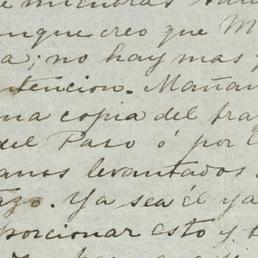 e mientras
unque creo que M
a; no hay mas
ntencion. Mañan
na copia del tra
del Paso ó por
anos levantados
azo. Ya sea él ya
porcionar esto y